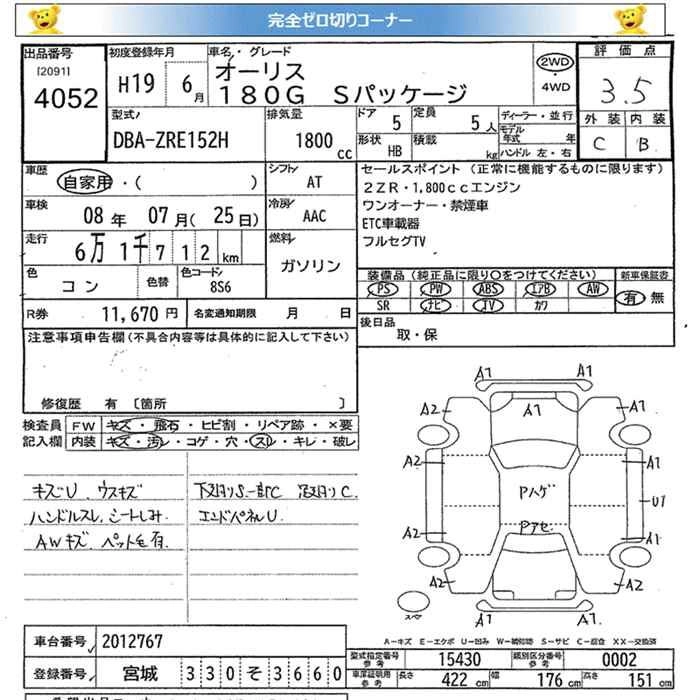 完全ゼロ切りコーナー
出品番号 初度登録年月 車名・グレード 評価点
[2091] オーリス 2WD
4052 H19 6月 180G Sパッケージ ・ 4WD 3.5
型式 排気量 ドア 定員 ディーラー・並行 外装 内装
DBA-ZRE152H 1800cc 5 5人 モデル年式 年
形状 HB 積載 kg ハンドル 左・右 C B
車歴 シフト セールスポイント (正常に機能するものに限ります)
自家用・( ) AT 2ZR・1,800ccエンジン
車検 冷房 ワンオーナー・禁煙車
08年 07月(25日) AAC ETC車載器
走行 燃料 フルセグTV
6万1千712km ガソリン
色 色替 色コード 装備品(純正品に限り〇をつけてください) 新車保証書
コン 8S6 PS PW ABS エアB AW 有・無
SR ナビ TV カワ
R券 11,670円 名変通知期限 月 日 後日品
注意事項申告欄(不具合内容等は具体的に記入して下さい) 取・保
修復歴 有 〔箇所 〕
検査員 FW キズ・飛石・ヒビ割・リペア跡・×要
記入欄 内装 キズ・汚レ・コゲ・穴・スレ・キレ・破レ
キズU、ウスキズ 下回りS.一部C
ハンドルスレ、シートしみ エンドパネルU.
AWキズ
A1 A1
A2 A1 A1
A2 A1
Pハゲ U1
A2 Pアセ A1
A2 A2
スペア A1 A1
A-キズ E-エクボ U-凹み W-補修跡 S-サビ C-腐食 XX-交換済
車台番号 2012767 型式指定番号 参考 15430 類別区分番号 参考 0002
登録番号 宮城 330そ3660 車庫証明用 参考 長さ 422cm 幅 176cm 高さ 151cm